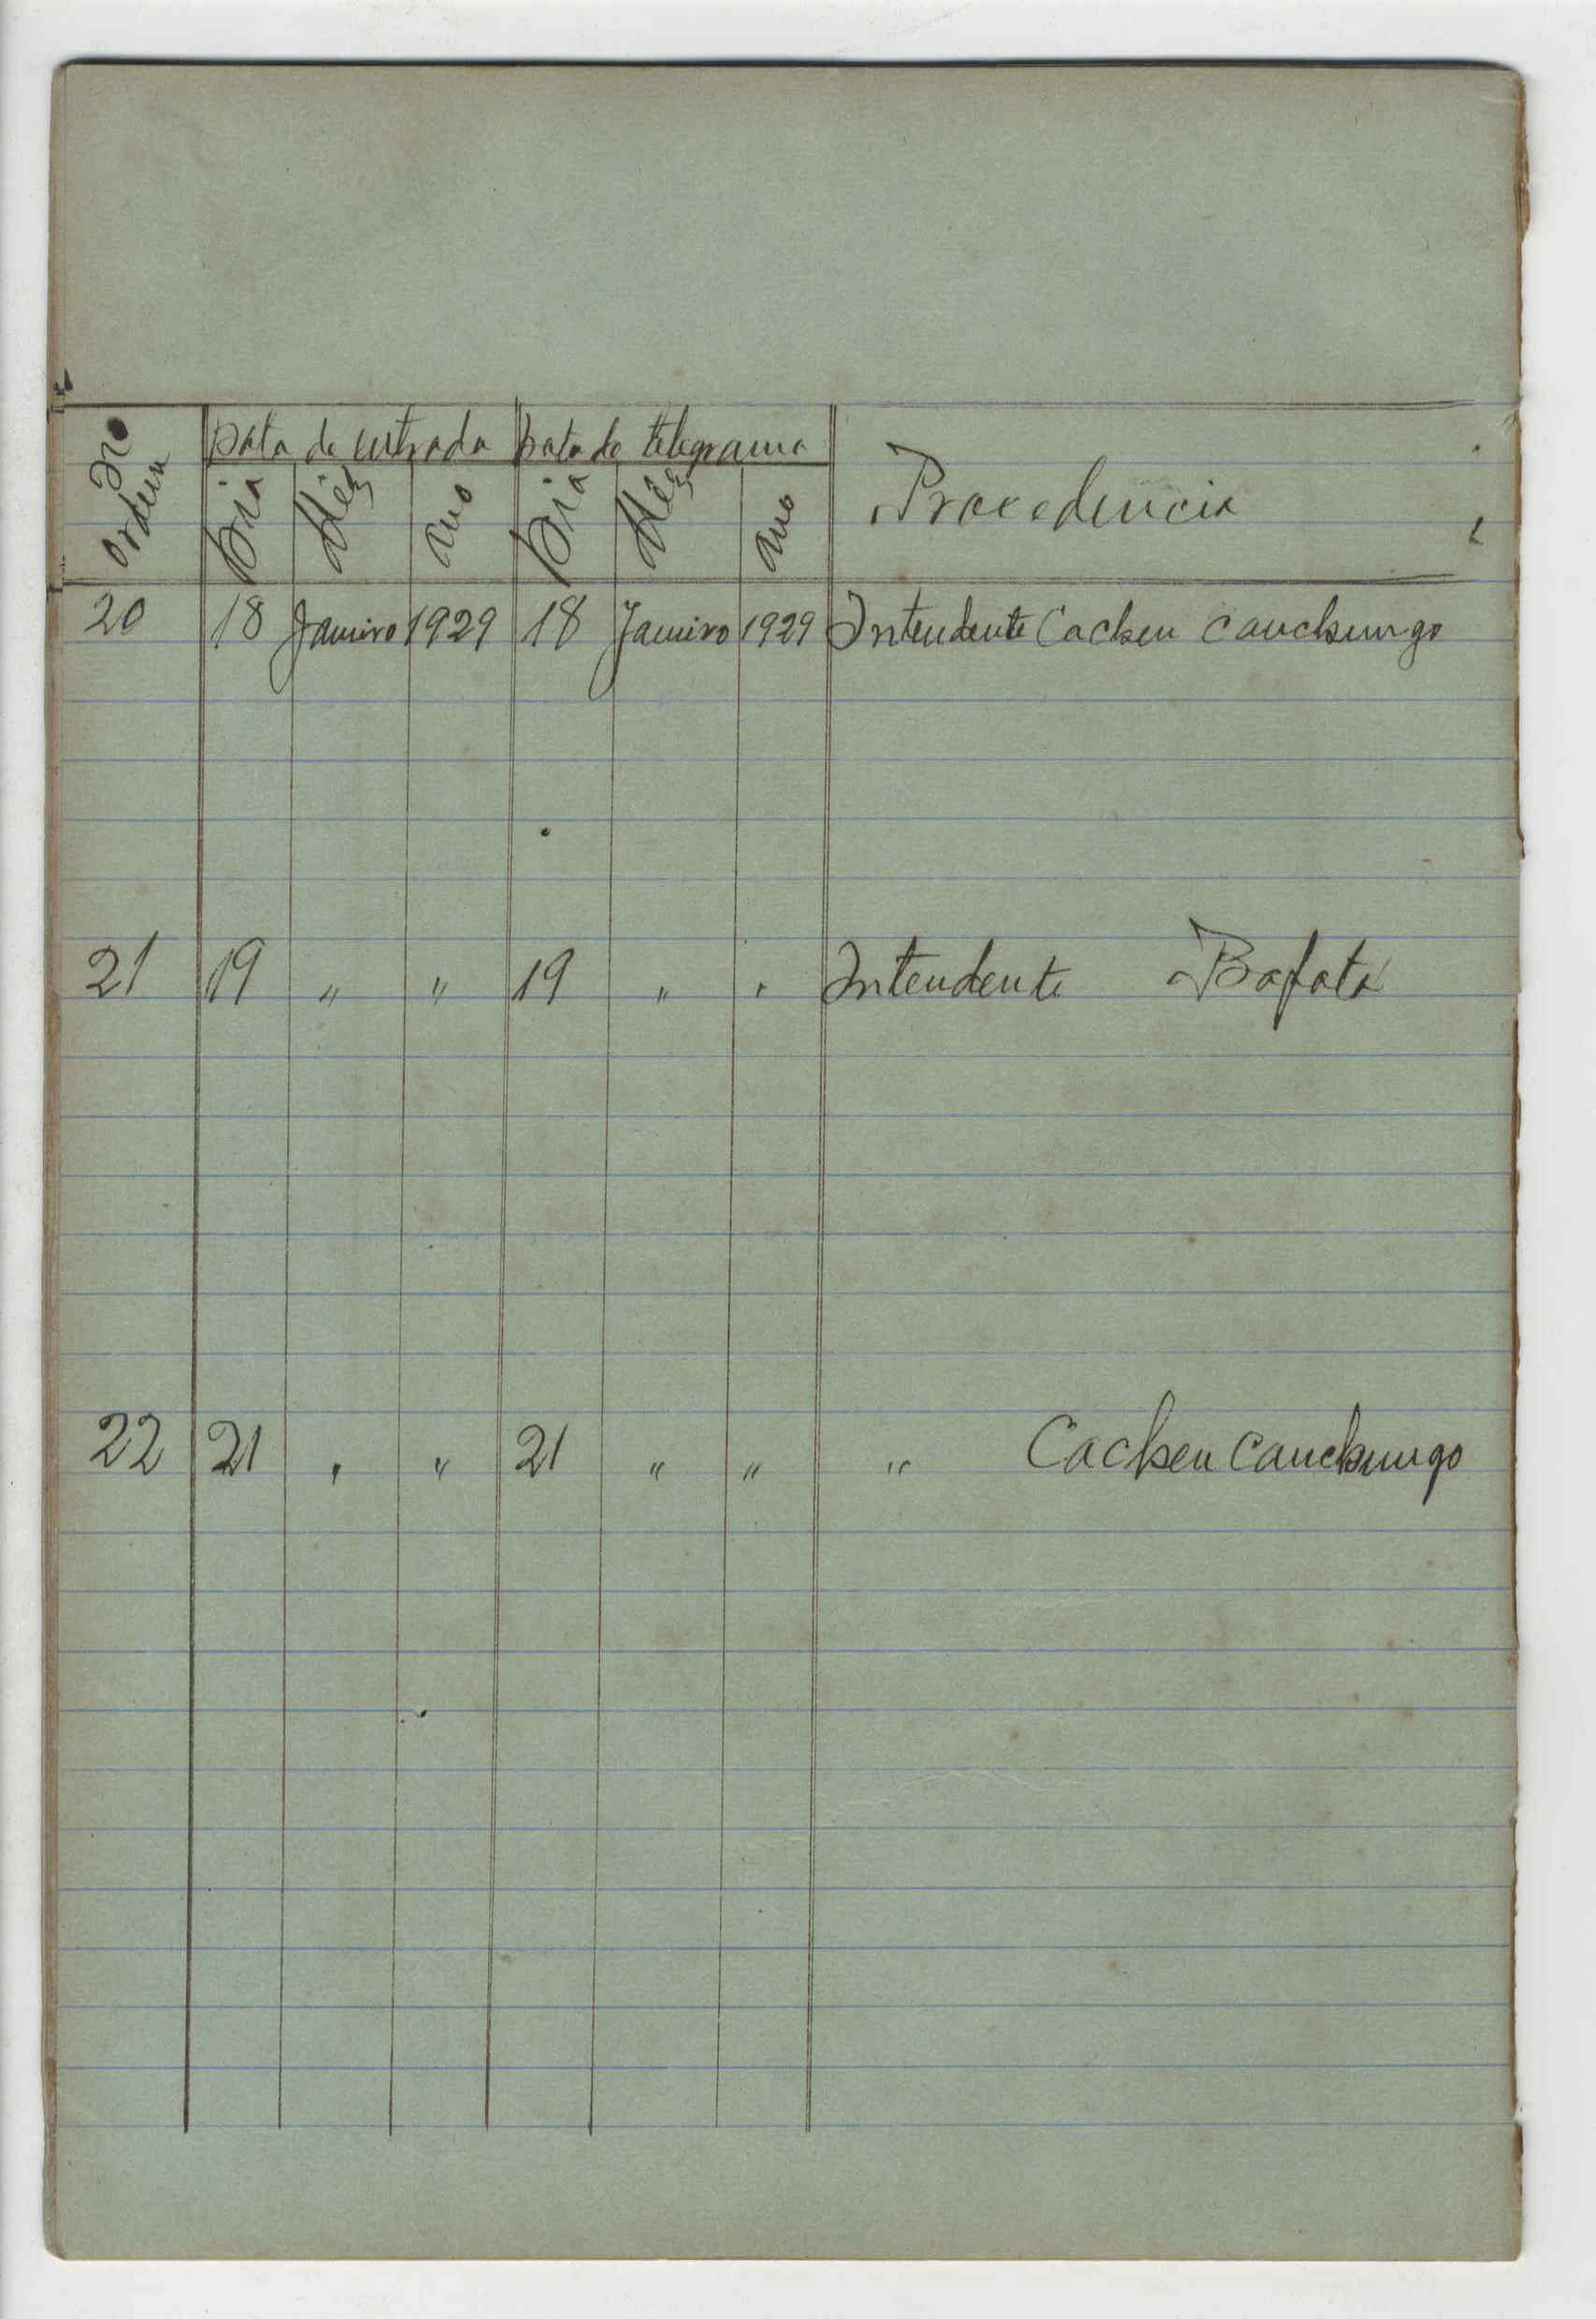 Nº Ordem Data de entrada Data do telegrama Procedencia
Dia Mês Ano Dia Mês Ano
20 18 Janeiro 1929 18 Janeiro 1929 Intendente Cacheu Canchungo
21 19 " " 19 " " Intendente Bafatá
22 21 " " 21 " " " Cacheu Canchungo